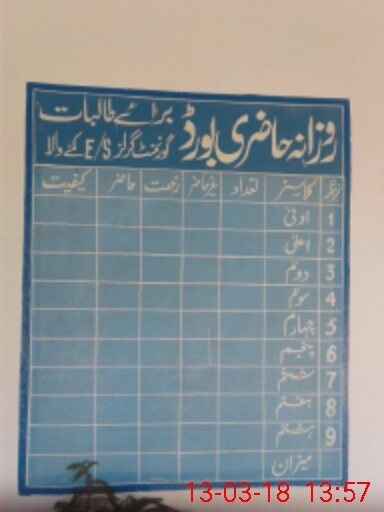 روزانہ حاضری بورڈ برائے طالبات
گورنمنٹ گرلز E/S کمے والا
نمبر کلاسیز تعداد غیر حاضر رخصت حاضر کیفیت
1 ادنیٰ
2 اعلیٰ
3 دوئم
4 سوئم
5 چہارم
6 پنجم
7 ششم
8 ہفتم
9 ہشتم
میزان
13-03-18 13:57